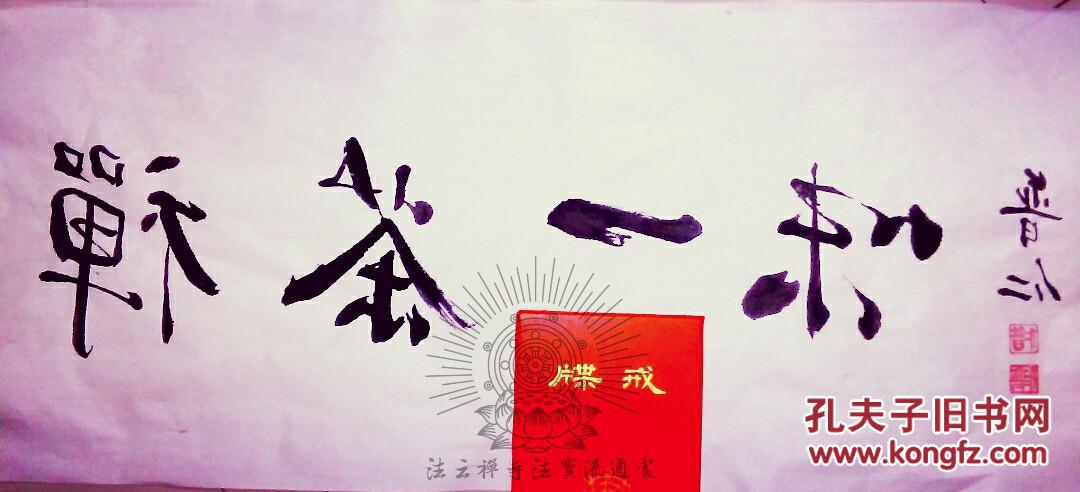 禪茶一味
戒牒
法云禪寺法寳流通處
孔夫子旧书网
www.kongfz.com